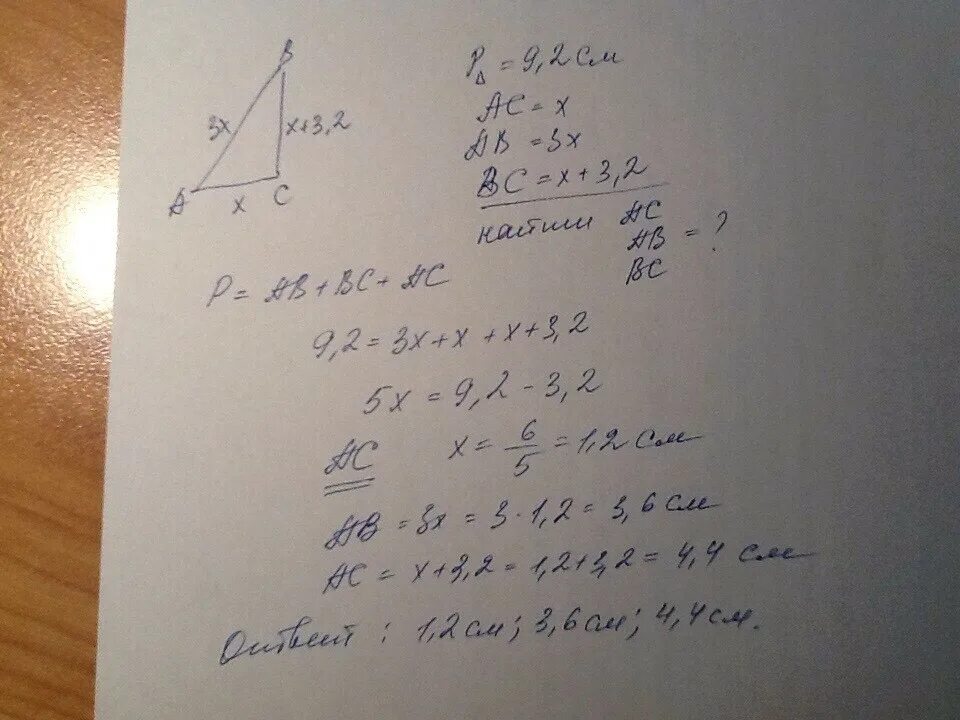 B
3x
x+3,2
A
x
C
P△ = 9,2 см
AC = x
AB = 3x
BC = x + 3,2
найти AC
AB = ?
BC
P = AB + BC + AC
9,2 = 3x + x + x + 3,2
5x = 9,2 - 3,2
AC x = 6/5 = 1,2 см
AB = 3x = 3 · 1,2 = 3,6 см
AC = x + 3,2 = 1,2 + 3,2 = 4,4 см
Ответ : 1,2 см; 3,6 см; 4,4 см.